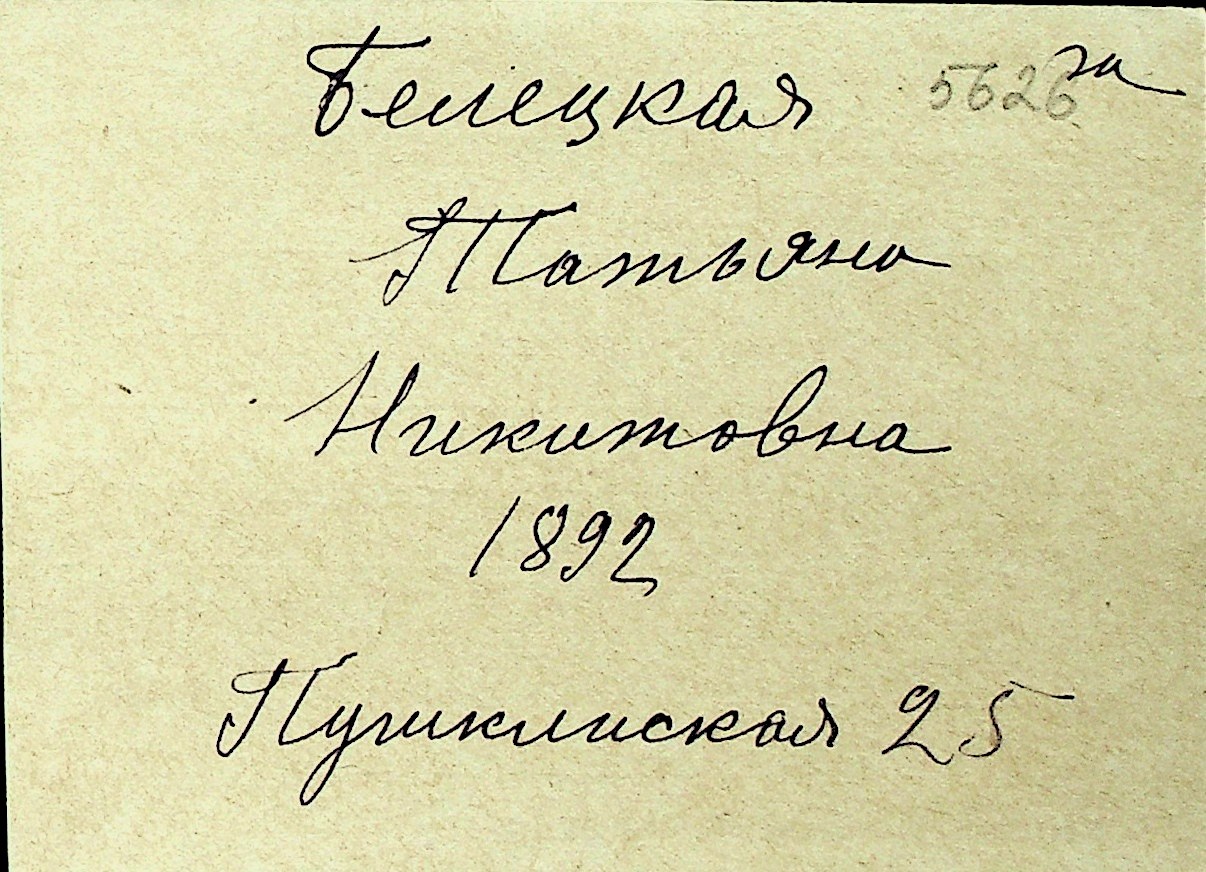 Белецкая 5626
Татьяна
Никитовна
1892
Пушкинская 25